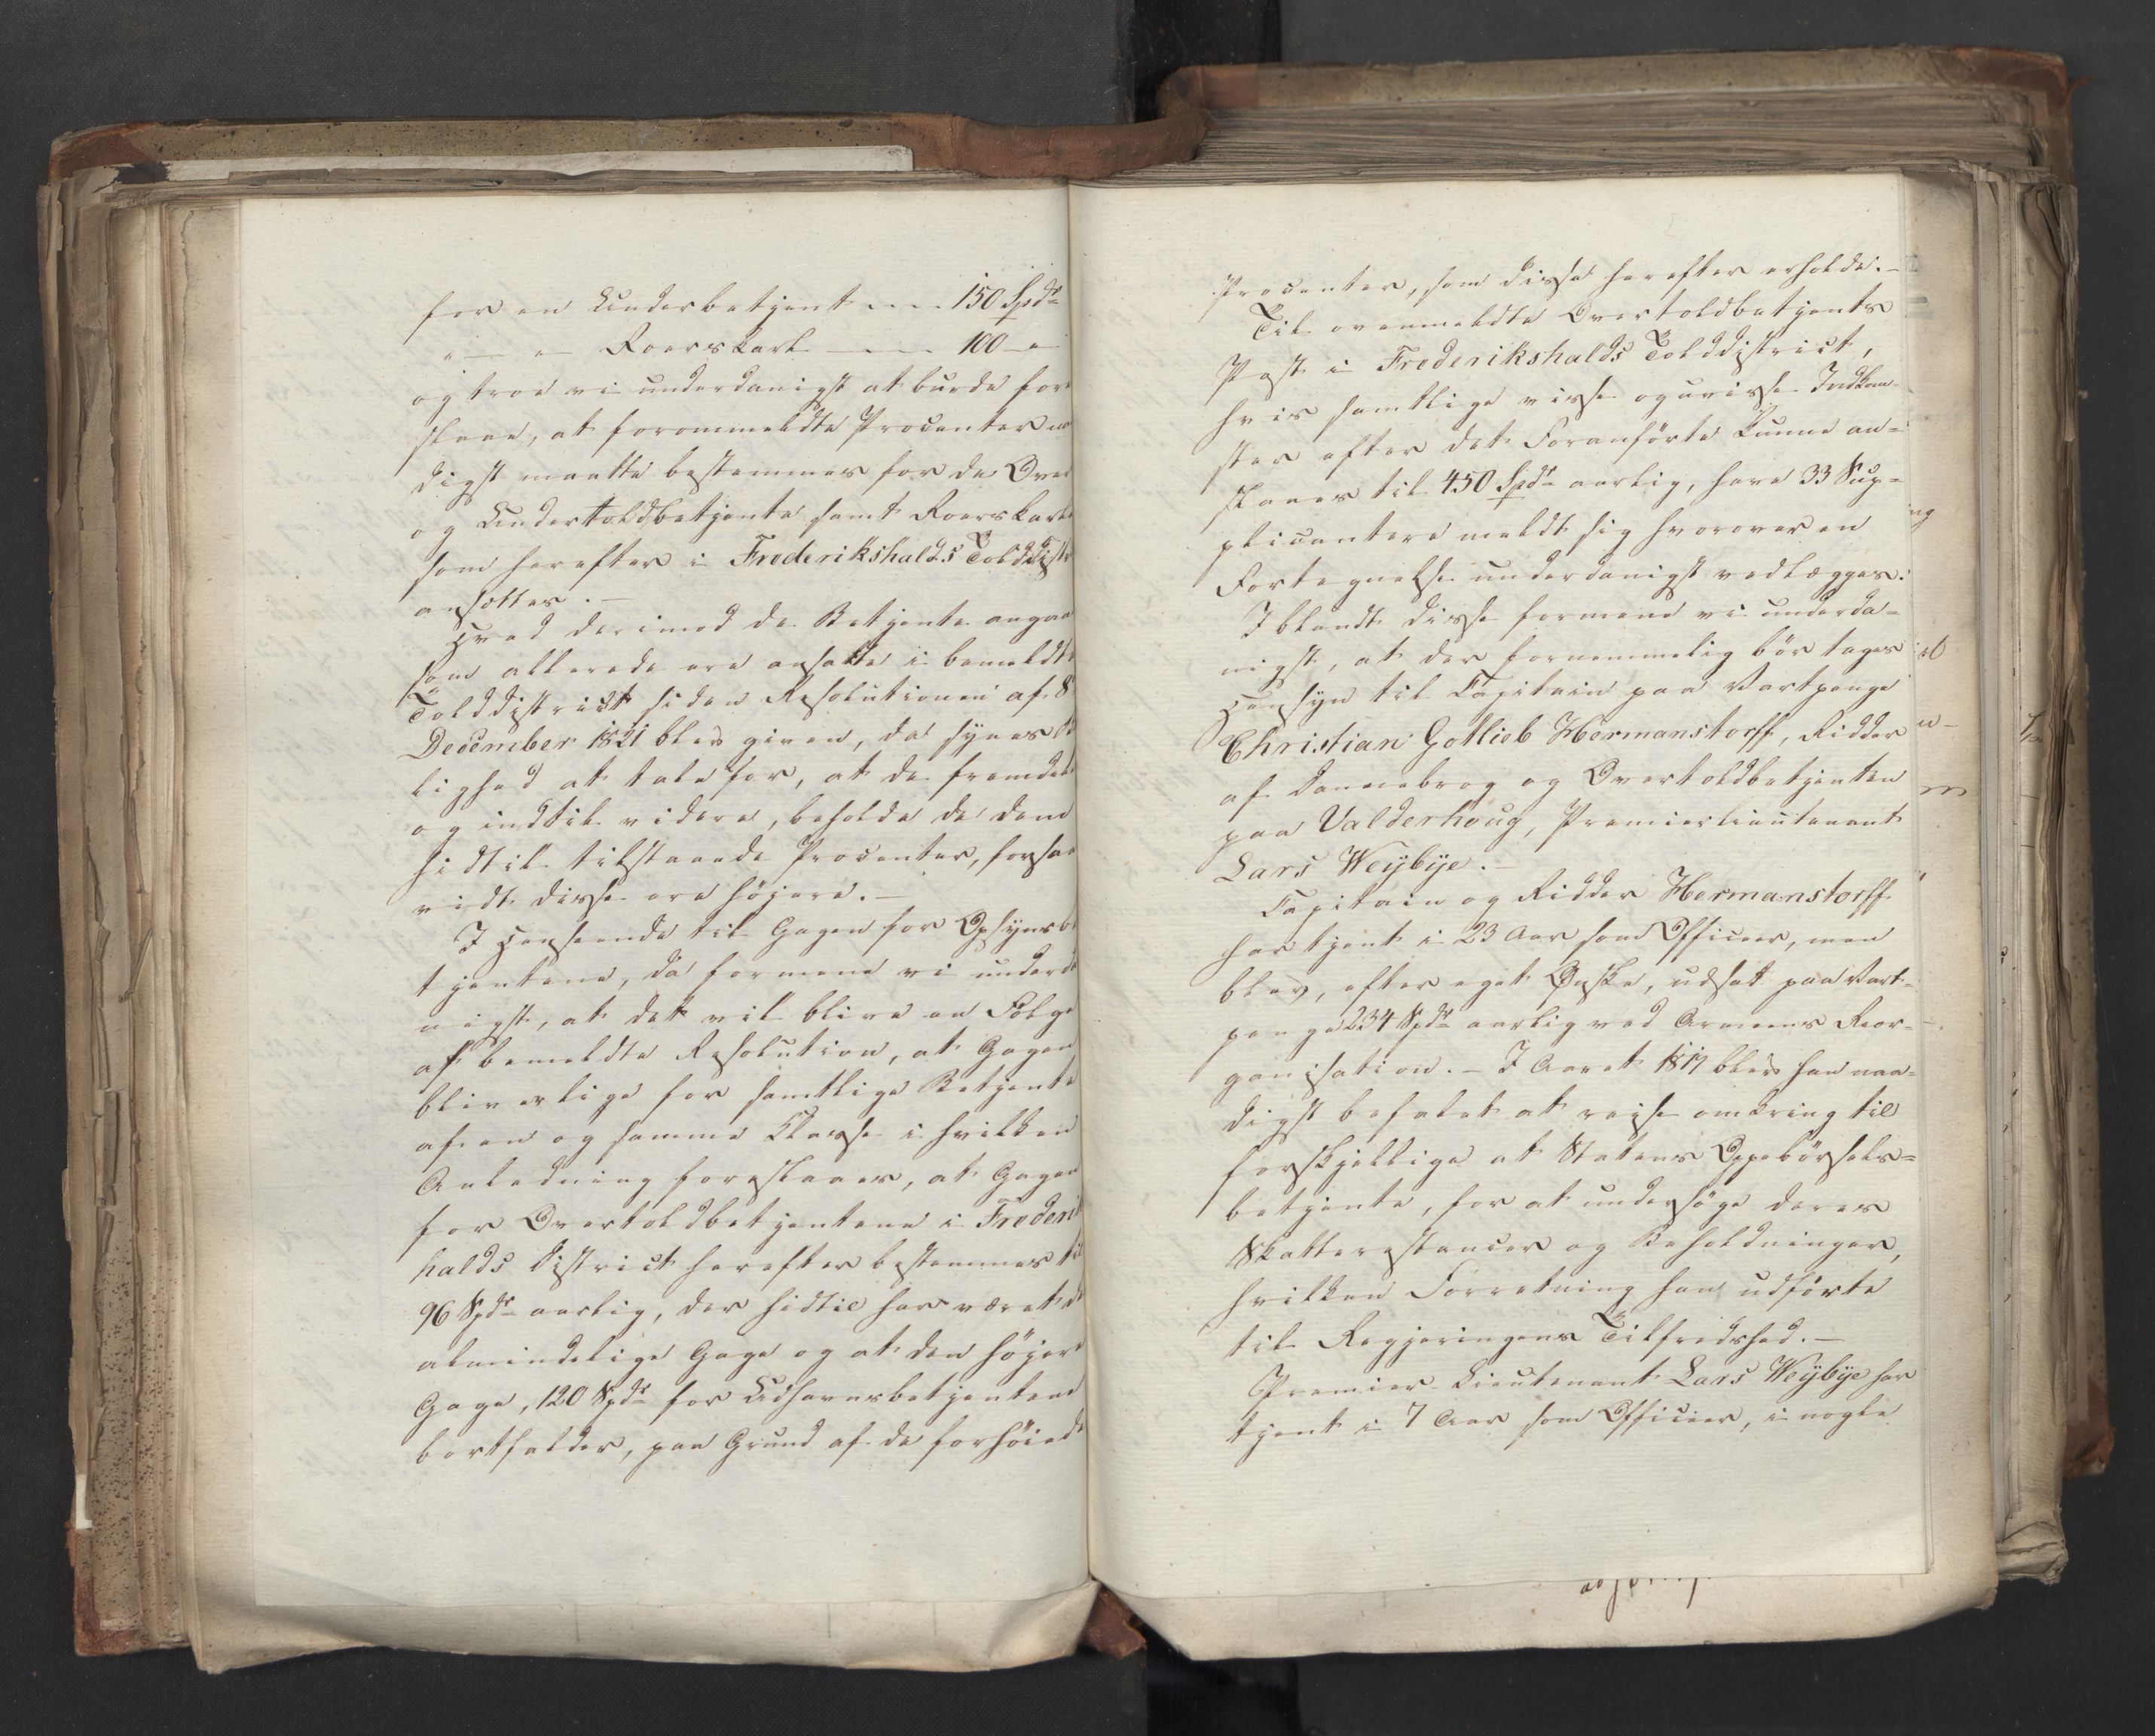 for en Underbetjent .... 150 Spdr
"— "— Roerskarl —.— 100 — "
og troe vi underdanigst at burde fore
slaae, at forommeldte Procenter naa
digst maatte bestemmes for de Over
og Undertoldbetjente samt Roerskarle
som herefter i Frederikshalds Tolddistr
ansættes. —
Hvad derimod de Betjente angaae
som allerede ere ansatte i bemeldte
Tolddistrict siden Resolutionen af 8
December 1821 blev given, da synes Bi
lighed at tale for, at de fremdeles
og indtil videre, beholde de dem
hidtil tilstaaede Procenter, forsaa
vidt disse ere höjere. —
I Henseende til Gagen for Opsynsbe
tjentene, da formene vi underda
nigst, at det vil blive en Fölge
af bemeldte Resolution, at Gagen
bliver lige for samtlige Betjente
af en og samme Klasse i hvilken
Anledning foreslaaes, at Gagen
for Overtoldbetjentene i Frederik
halds District herefter bestemmes til
96 Spdr aarlig, der hidtil har været de
almindelige Gage og at den höjere
Gage, 120 Spdr for Udhavnsbetjentene
bortfalder, paa Grund af de forhöiede
Procenter, som disse herefter erholde. —
Til ovenmeldte Overtoldbetjents
Post i Frederikshalds Tolddistrict,
hvis samtlige visse og uvisse Indkom-
ster efter det Foranförte kunne an=
slaaes til 450 Spdr aarlig, have 33 Sup=
plicantere meldt sig hvorover en
Fortegnelse underdanigst vedlægges.
Iblandt disse formene vi underda=
nigst, at der fornemmelig bör tages
Hensyn til Capitain paa Vartpenge
Christian Gotlieb Hermanstorff, Ridder
af Dannebrog og Overtoldbetjenten
paa Valderhoug, Premierlieutenant
Lars Weÿbÿe. —
Capitain og Ridder Hermanstorff
har tjent i 23 Aar som Officeer, men
blev, efter eget Ønske, udsat paa Vart-
penge 234 Spdr aarlig ved Armeens Reor-
ganisation. — I Aaret 1817 blev han naa=
digst befalet at reise omkring til
forskjellige at Statens Oppebörsels=
betjente, for at undersöge deres
Skatterestancer og Beholdninger,
hvilken Forretning han udförte
til Regjeringens Tilfredshed. —
Premier-Lieutenant Lars Weÿbÿe har
tjent i 7 Aar som Officier, i nogle